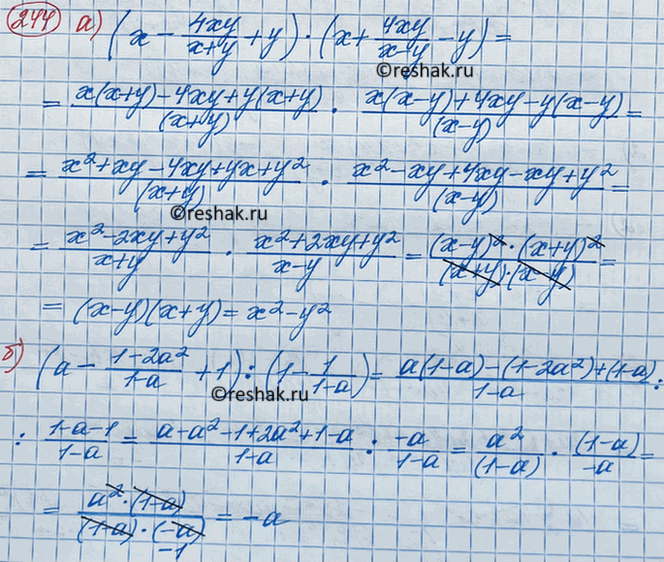 244 а) (x - 4xy/(x+y) + y) · (x + 4xy/(x-y) - y) =
©reshak.ru
= (x(x+y)-4xy+y(x+y))/(x+y) · (x(x-y)+4xy-y(x-y))/(x-y) =
= (x²+xy-4xy+yx+y²)/(x+y) · (x²-xy+4xy-xy+y²)/(x-y) =
©reshak.ru
= (x²-2xy+y²)/(x+y) · (x²+2xy+y²)/(x-y) = ((x-y)²·(x+y)²)/((x+y)·(x-y)) =
= (x-y)(x+y) = x²-y²
б) (a - (1-2a²)/(1-a) + 1) : (1 - 1/(1-a)) = (a(1-a)-(1-2a²)+(1-a))/(1-a) :
©reshak.ru
: (1-a-1)/(1-a) = (a-a²-1+2a²+1-a)/(1-a) : (-a)/(1-a) = a²/(1-a) · (1-a)/(-a) =
= (a²·(1-a))/((1-a)·(-a)) = -a
-1